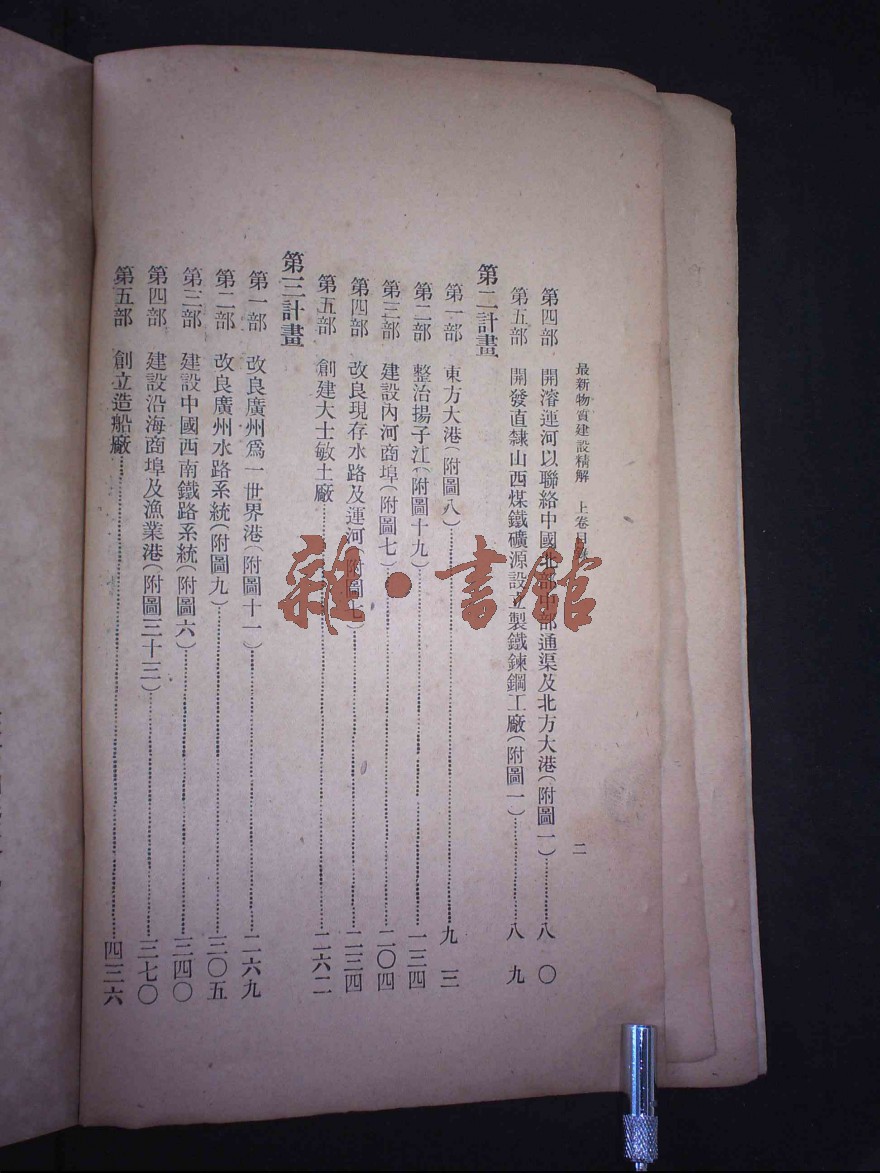 最新物質建設精解　上卷目錄　二
第四部　開濬運河以聯絡中國北部中部通渠及北方大港(附圖一)……八〇
第五部　開發直隸山西煤鐵礦源設立製鐵鍊鋼工廠(附圖一)……八九
第二計畫
第一部　東方大港(附圖八)……九三
第二部　整治揚子江(附圖十九)……一三四
第三部　建設內河商埠(附圖七)……二〇四
第四部　改良現存水路及運河(附圖七)……二三四
第五部　創建大士敏土廠……二六二
第三計畫
第一部　改良廣州爲一世界港(附圖十一)……二六九
第二部　改良廣州水路系統(附圖九)……三〇五
第三部　建設中國西南鐵路系統(附圖六)……三四〇
第四部　建設沿海商埠及漁業港(附圖三十三)……三七〇
第五部　創立造船廠……四三六
雜·書館